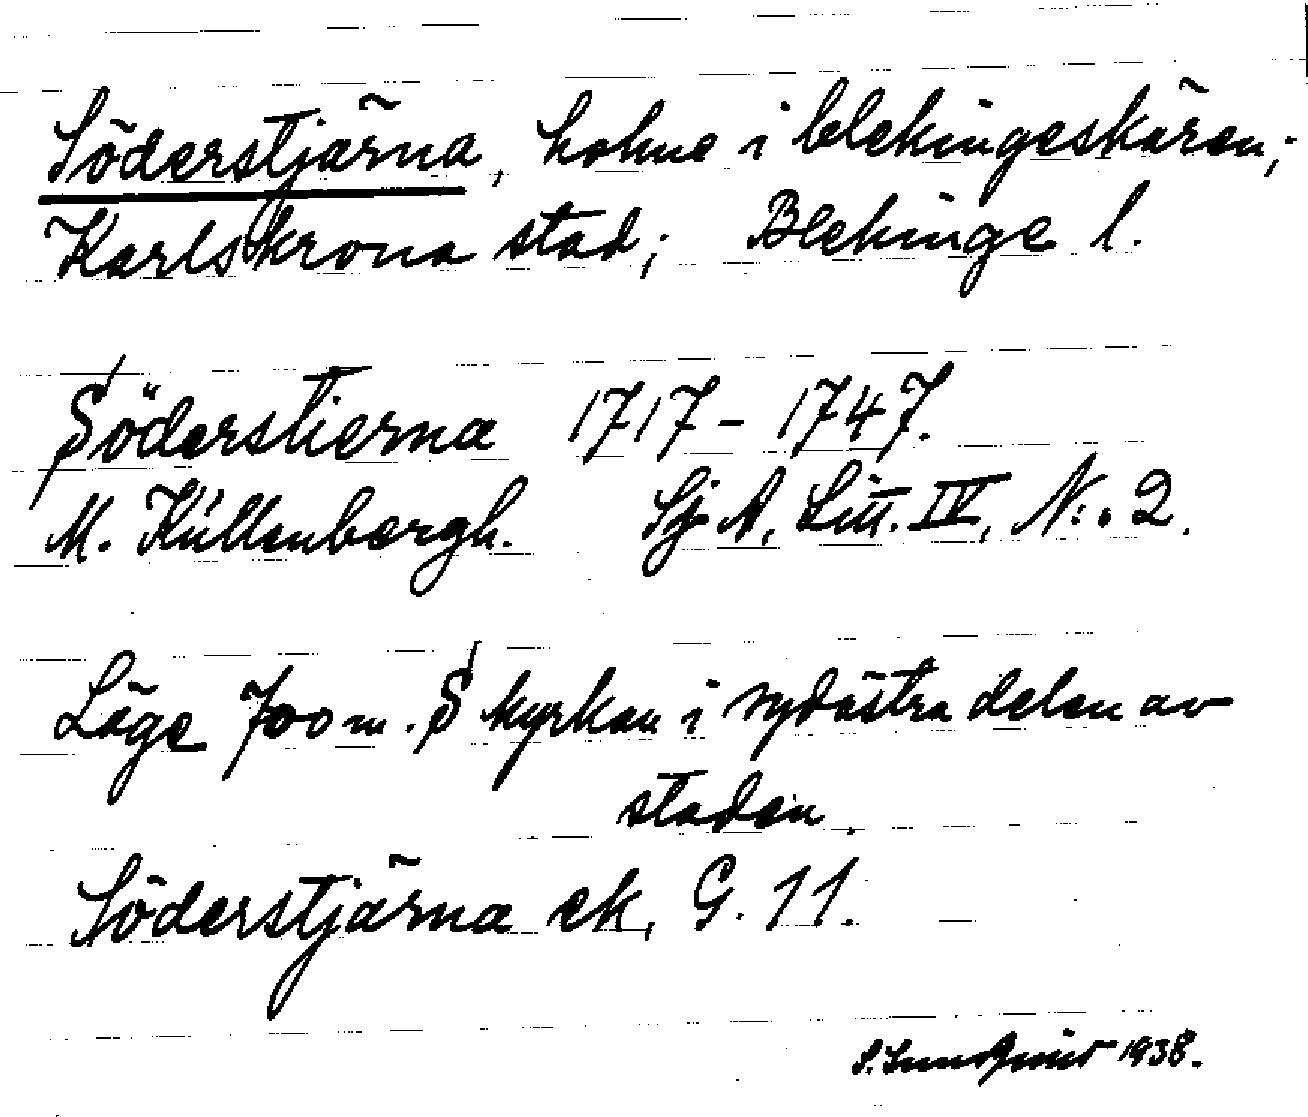 Söderstjärna, holme i blekingeskären;
Karlskrona stad; Blekinge l.
Söderstierna 1717-1747.
M. Küllenbergh. Sj A, Litt. IV, N:. 2.
Läge 700 m. S kyrkan i sydöstra delen av
staden.
Söderstjärna ek, G. 11.
S. Sundqvist 1938.